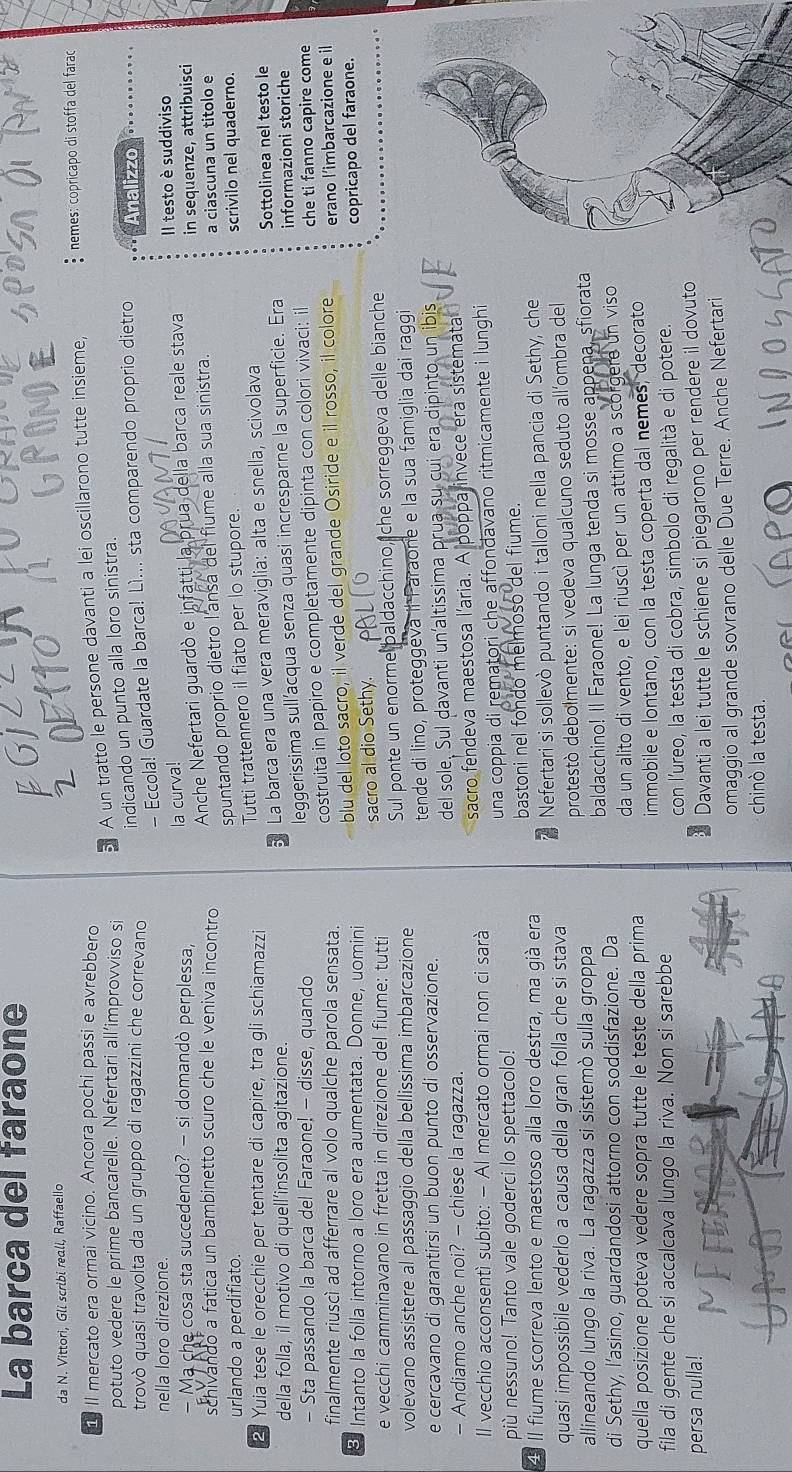 La barca del faraone
da N. Vittori, Gli scribi reali, Raffaello
1 Il mercato era ormai vicino. Ancora pochi passi e avrebbero
potuto vedere le prime bancarelle. Nefertari all'improvviso si
trovò quasi travolta da un gruppo di ragazzini che correvano
nella loro direzione.
– Ma che cosa sta succedendo? – si domandò perplessa,
schivando a fatica un bambinetto scuro che le veniva incontro
urlando a perdifiato.
2 Yula tese le orecchie per tentare di capire, tra gli schiamazzi
della folla, il motivo di quell'insolita agitazione.
– Sta passando la barca del Faraone! – disse, quando
finalmente riuscì ad afferrare al volo qualche parola sensata.
3 Intanto la folla intorno a loro era aumentata. Donne, uomini
e vecchi camminavano in fretta in direzione del fiume: tutti
volevano assistere al passaggio della bellissima imbarcazione
e cercavano di garantirsi un buon punto di osservazione.
– Andiamo anche noi? – chiese la ragazza.
Il vecchio acconsentì subito: – Al mercato ormai non ci sarà
più nessuno! Tanto vale goderci lo spettacolo!
4 Il fiume scorreva lento e maestoso alla loro destra, ma già era
quasi impossibile vederlo a causa della gran folla che si stava
allineando lungo la riva. La ragazza si sistemò sulla groppa
di Sethy, l'asino, guardandosi attorno con soddisfazione. Da
quella posizione poteva vedere sopra tutte le teste della prima
fila di gente che si accalcava lungo la riva. Non si sarebbe
persa nulla!
2 DETTO
GRANDE
5 A un tratto le persone davanti a lei oscillarono tutte insieme,
indicando un punto alla loro sinistra.
– Eccola! Guardate la barca! Lì... sta comparendo proprio dietro
la curva!
DAVANTI
Anche Nefertari guardò e infatti la prua della barca reale stava
spuntando proprio dietro l'ansa del fiume alla sua sinistra.
Tutti trattennero il fiato per lo stupore.
6 La barca era una vera meraviglia: alta e snella, scivolava
leggerissima sull'acqua senza quasi incresparne la superficie. Era
costruita in papiro e completamente dipinta con colori vivaci: il
blu del loto sacro, il verde del grande Osiride e il rosso, il colore
sacro al dio Sethy.
Sul ponte un enorme baldacchino, che sorreggeva delle bianche
tende di lino, proteggeva il Faraone e la sua famiglia dai raggi
del sole. Sul davanti un'altissima prua su cui era dipinto un ibis
sacro, fendeva maestosa l'aria. A poppa invece era sistemata
una coppia di rematori che affondavano ritmicamente i lunghi
bastoni nel fondo melmoso del fiume.
7 Nefertari si sollevò puntando i talloni nella pancia di Sethy, che
protestò debolmente: si vedeva qualcuno seduto all'ombra del
baldacchino! Il Faraone! La lunga tenda si mosse appena, sfiorata
da un alito di vento, e lei riuscì per un attimo a scorgere un viso
immobile e lontano, con la testa coperta dal nemes, decorato
con l'ureo, la testa di cobra, simbolo di regalità e di potere.
8 Davanti a lei tutte le schiene si piegarono per rendere il dovuto
omaggio al grande sovrano delle Due Terre. Anche Nefertari
chinò la testa.
INDOSSATO
nemes: copricapo di stoffa del farao
Analizzo
Il testo è suddiviso
in sequenze, attribuisci
a ciascuna un titolo e
scrivilo nel quaderno.
Sottolinea nel testo le
informazioni storiche
che ti fanno capire come
erano l'imbarcazione e il
copricapo del faraone.